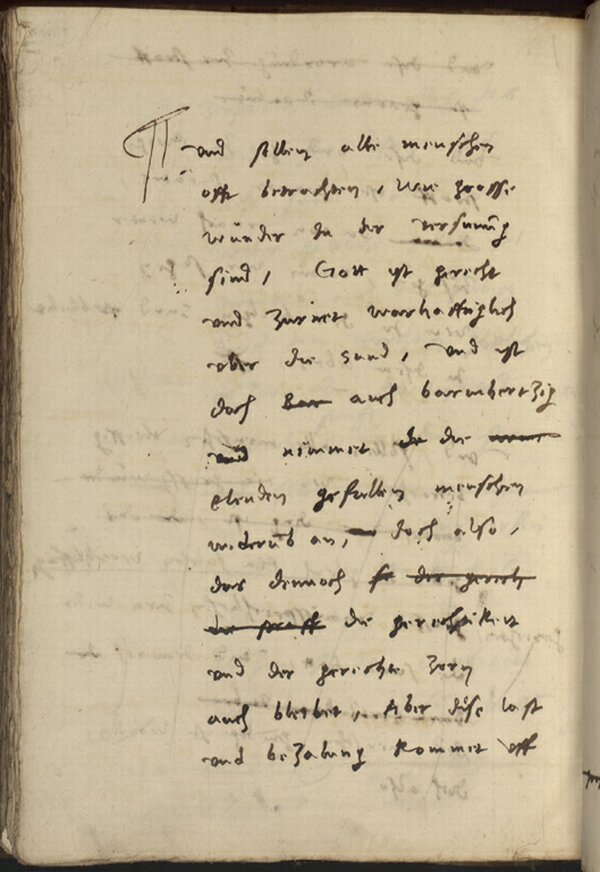 ¶ und sollen alle menschen
offt betrachten, wie grosse
wunder in der versunūg
sind, Gott ist gerecht
und zurnet warhafftiglich
uber die sund, und ist
doch auch barmhertzig
und nimmet die
elenden gefallen menschen
widerūb an, doch also,
das dennoch der gerech
die straff die gerechtikeit
und der gerechte zorn
auch bleibet, Aber dise last
und bezalung kommet uff